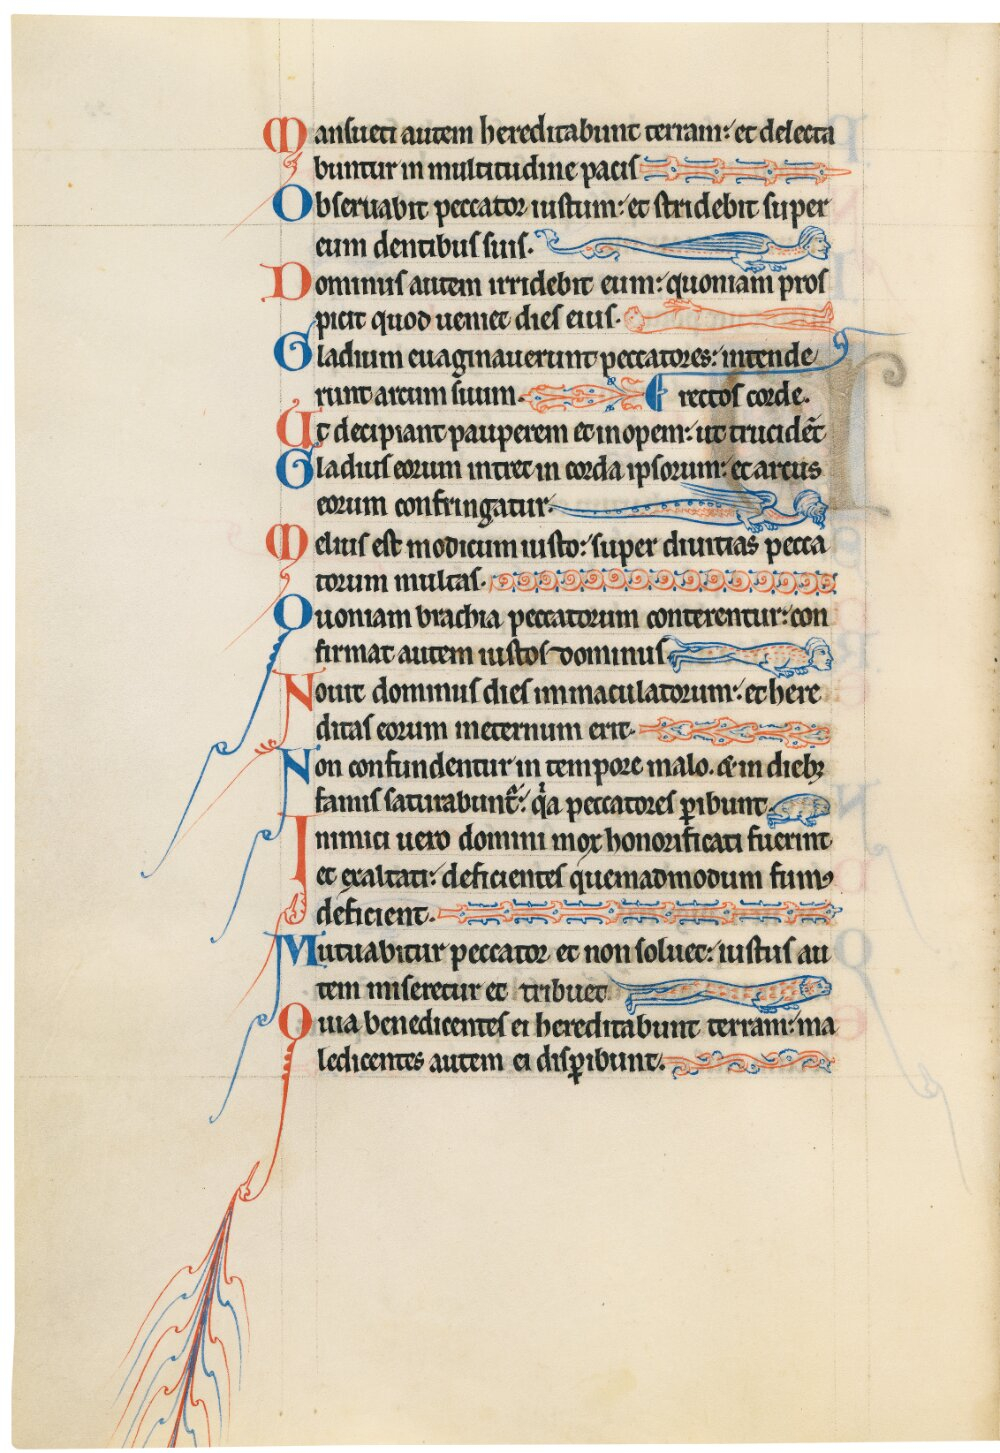 Mansueti autem hereditabunt terram: et delecta
buntur in multitudine pacis
Obseruabit peccator iustum: et stridebit super
eum dentibus suis.
Dominus autem irridebit eum: quoniam pros
picit quod ueniet dies eius.
Gladium euaginauerunt peccatores: intende
runt arcum suum. rectos corde.
Ut decipiant pauperem et inopem: ut trucidẽt
Gladius eorum intret in corda ipsorum: et arcus
eorum confringatur.
Melius est modicum iusto: super diuitias pecca
torum multas.
Quoniam brachia peccatorum conterentur: con
firmat autem iustos dominus.
Nouit dominus dies immaculatorum: et here
ditas eorum ineternum erit.
Non confundentur in tempore malo. & in diebꝫ
famis saturabunt᷑: q̃a peccatores ꝑibunt.
Inimici uero domini mox honorificati fuerint
et exaltati: deficientes quemadmodum fumꝰ
deficient.
Mutuabitur peccator et non soluet: iustus au
tem miseretur et tribuet
Quia benedicentes ei hereditabunt terram: ma
ledicentes autem ei disꝑibunt.